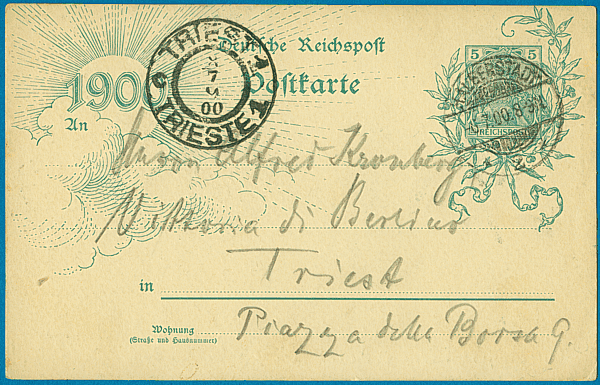 Deutsche Reichspost
Postkarte
1900
5 5
REICHSPOST
HALBERSTADT
TRIEST 1
TRIESTE 1
00
An
Herrn Alfred Kronberg
Vittoria di Berlino
in Triest
Wohnung
(Straße und Hausnummer)
Piazza della Borsa 9.